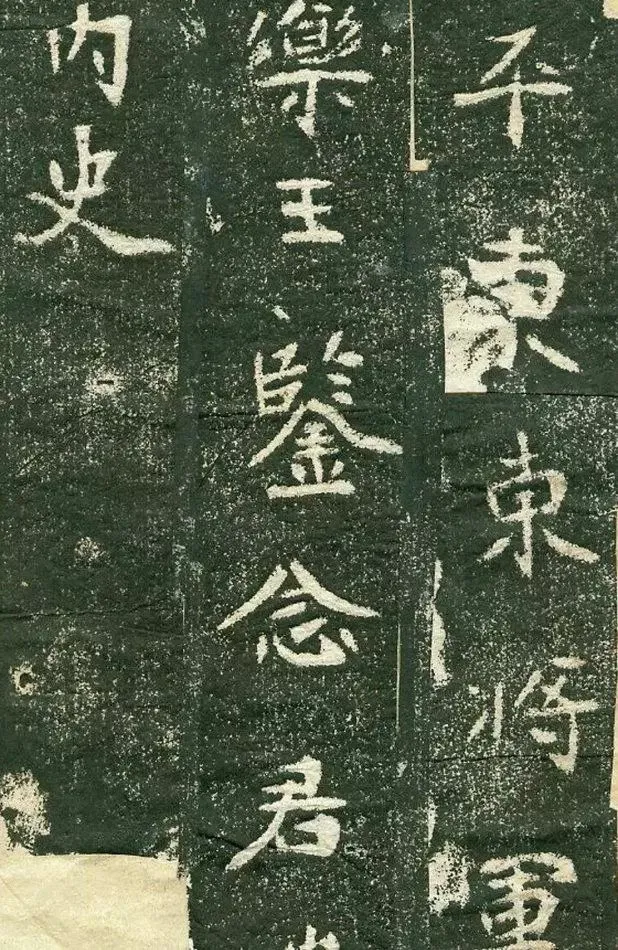 平東將軍
樂王鑒念君
内史